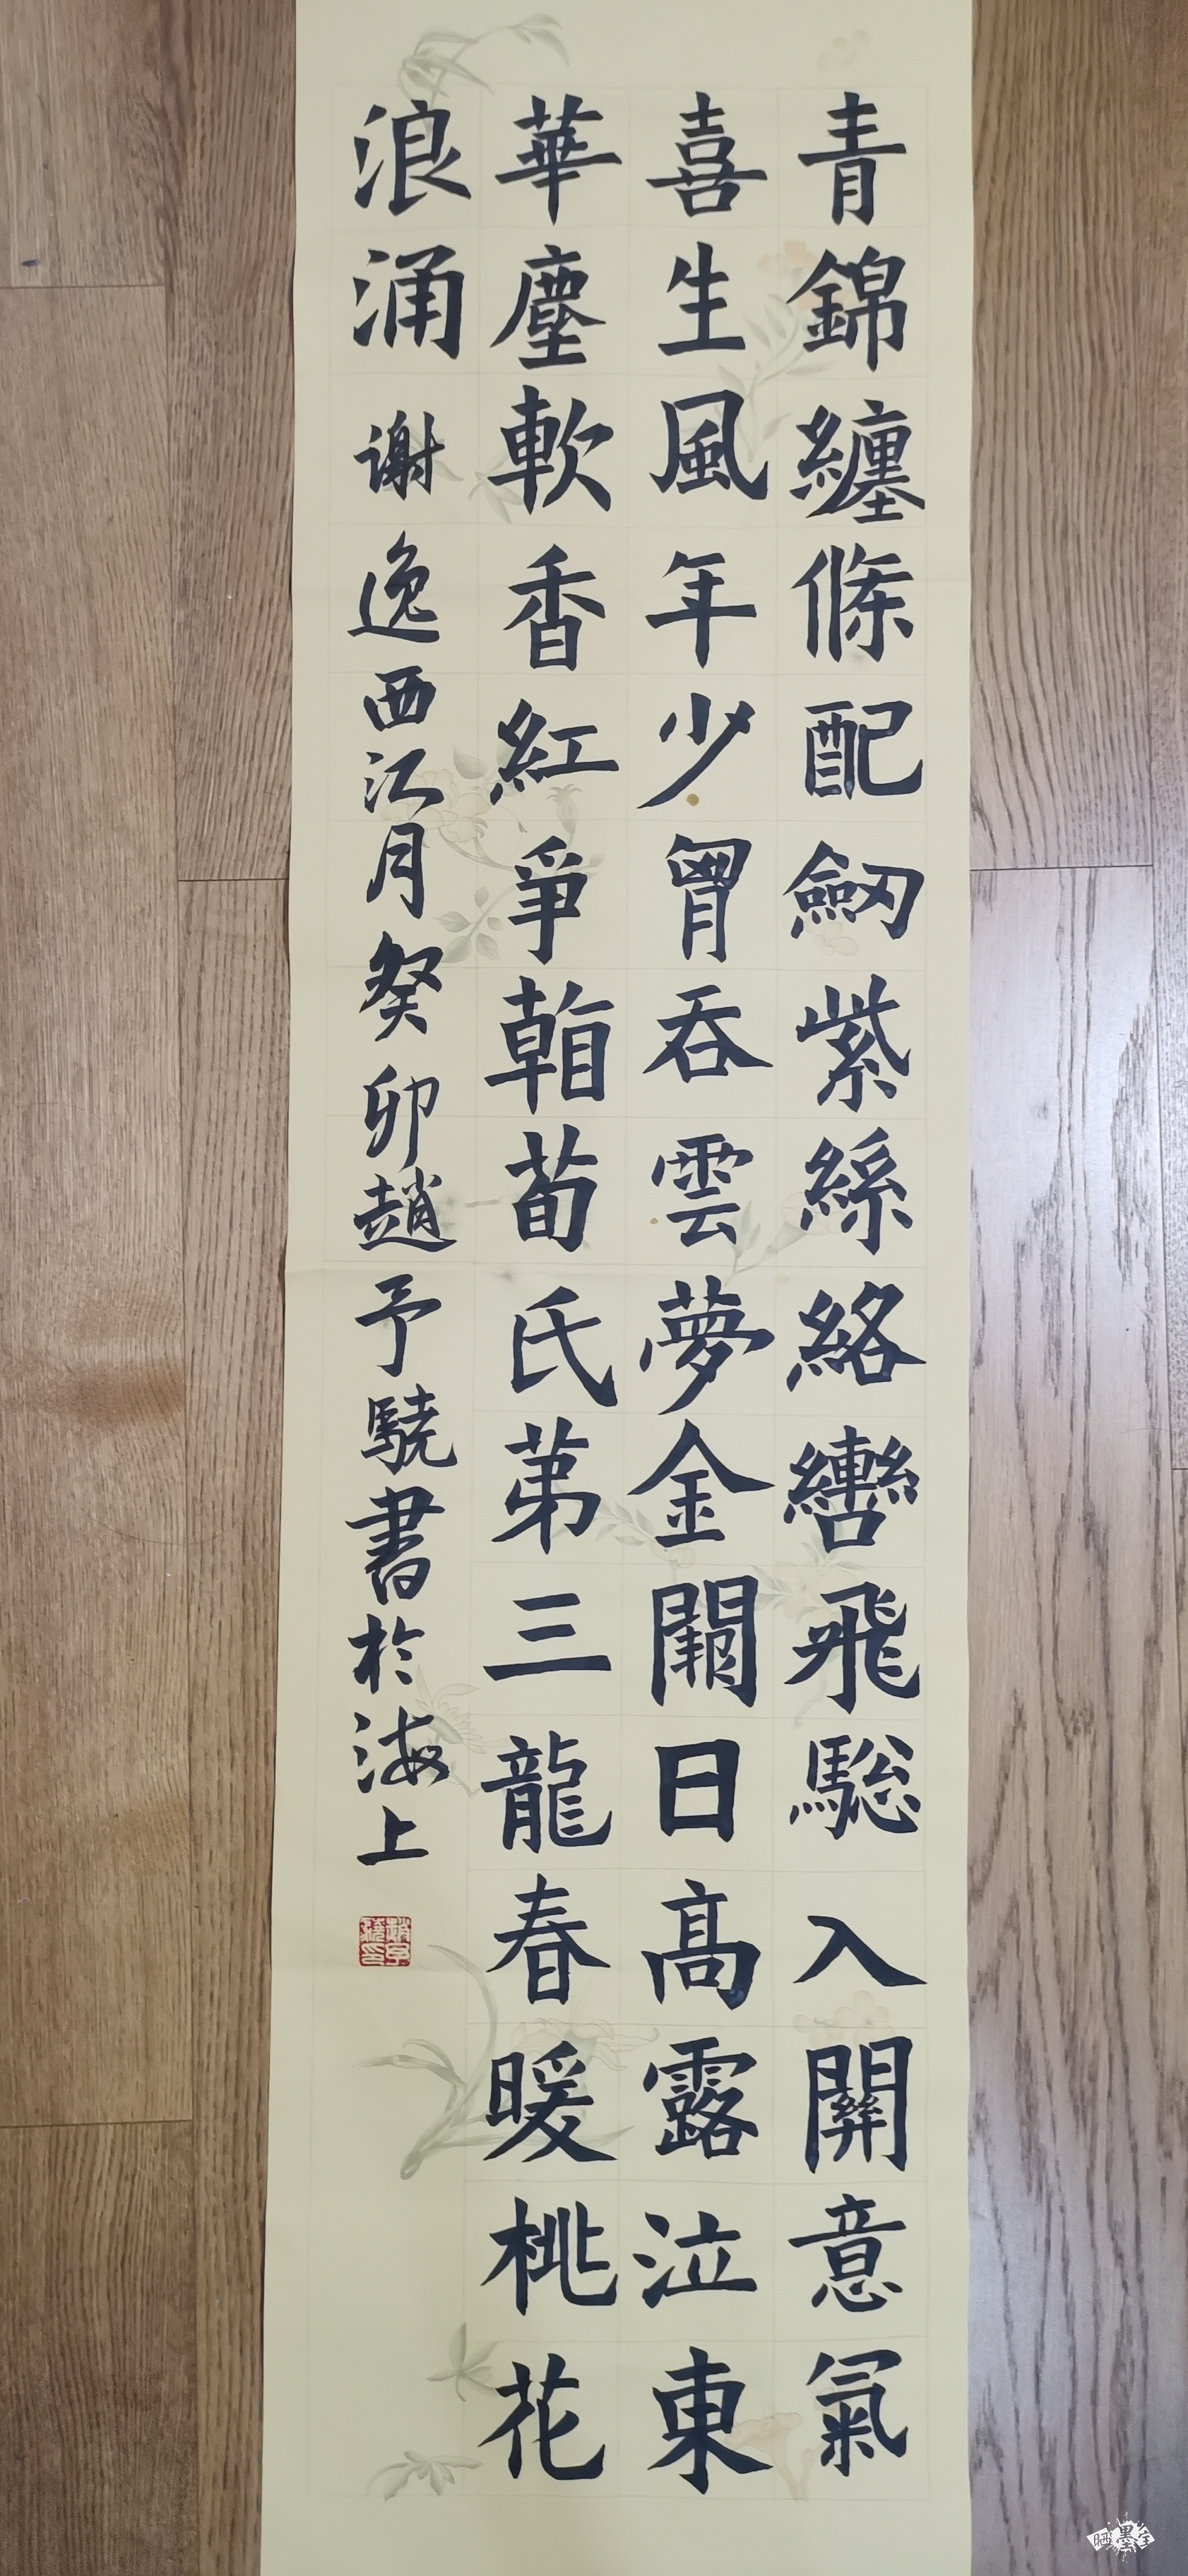 青錦纏條配劒紫絲絡轡飛騘入關意氣
喜生風年少胷吞雲夢金闕日高露泣東
華塵軟香紅爭看荀氏苐三龍春暖桃花
浪涌 谢逸西江月癸卯趙予驍書於海上
趙予驍印